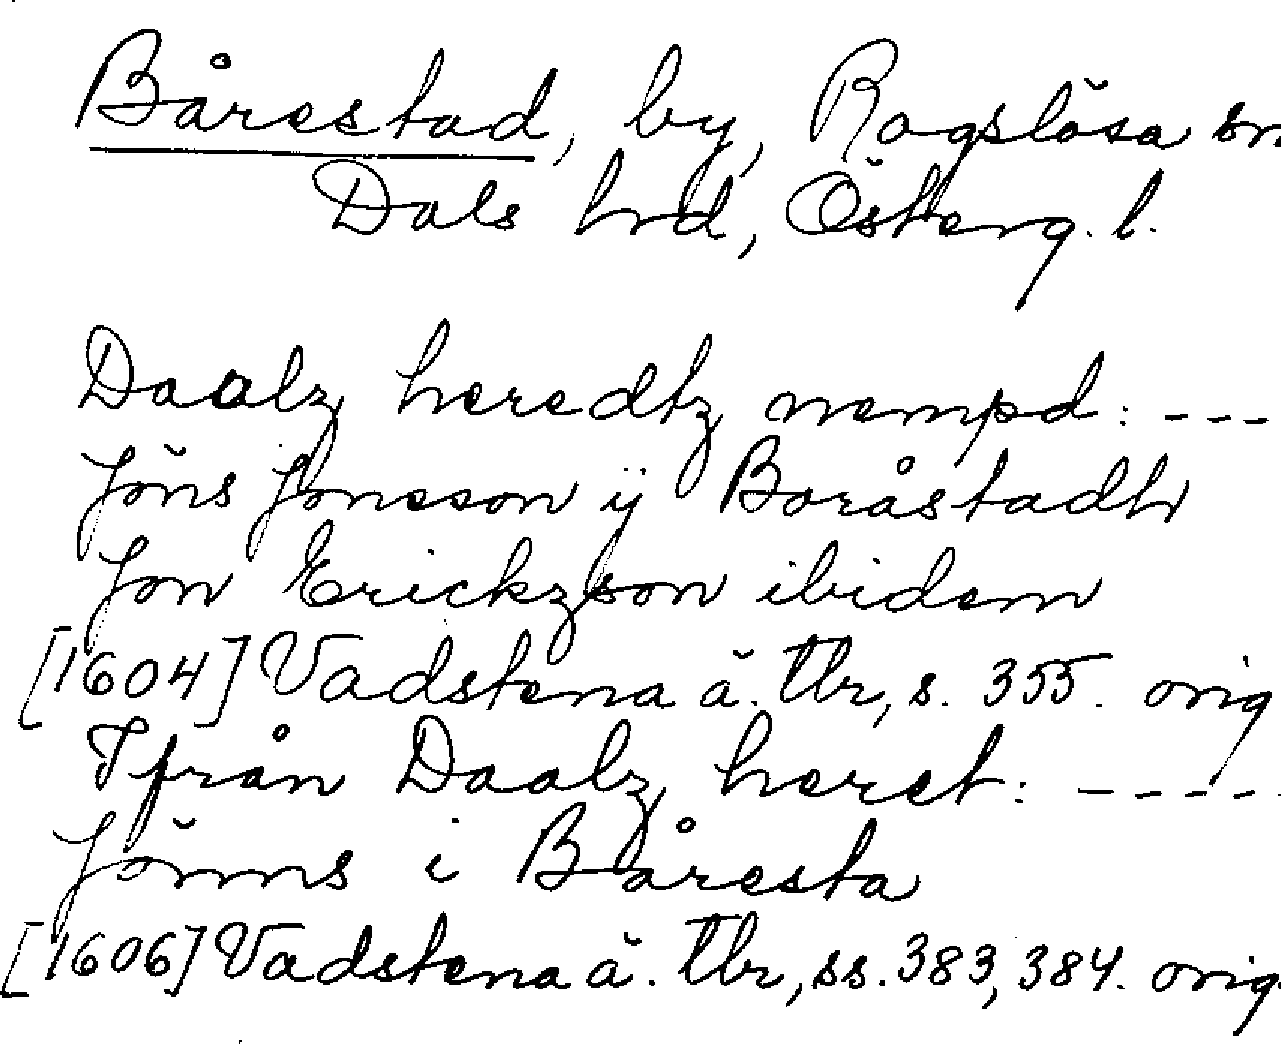 Bårestad, by, Rogslösa sn
Dals hrd, Österg. l.
Daalz heredtz nempd: ---
Jöns Jonsson ij Boråstadh
Jon Erickzson ibidem
[1604] Vadstena ä. tbr, s. 355. orig
Ifrån Daalz heret: -----
Jönns i Båresta
[1606] Vadstena ä. tbr, ss. 383, 384. orig.